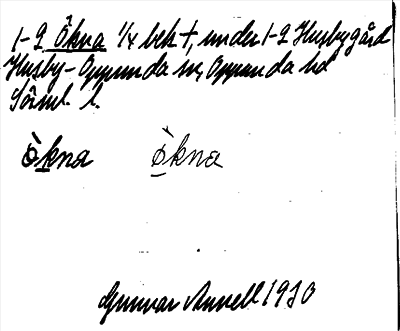 1-2 Ökna 1/4 beb †, under 1-2 Husbygård
Husby-Oppunda sn, Oppunda hd
Sörml. l.
ò̱kna ò̱kna
Gunnar 1930